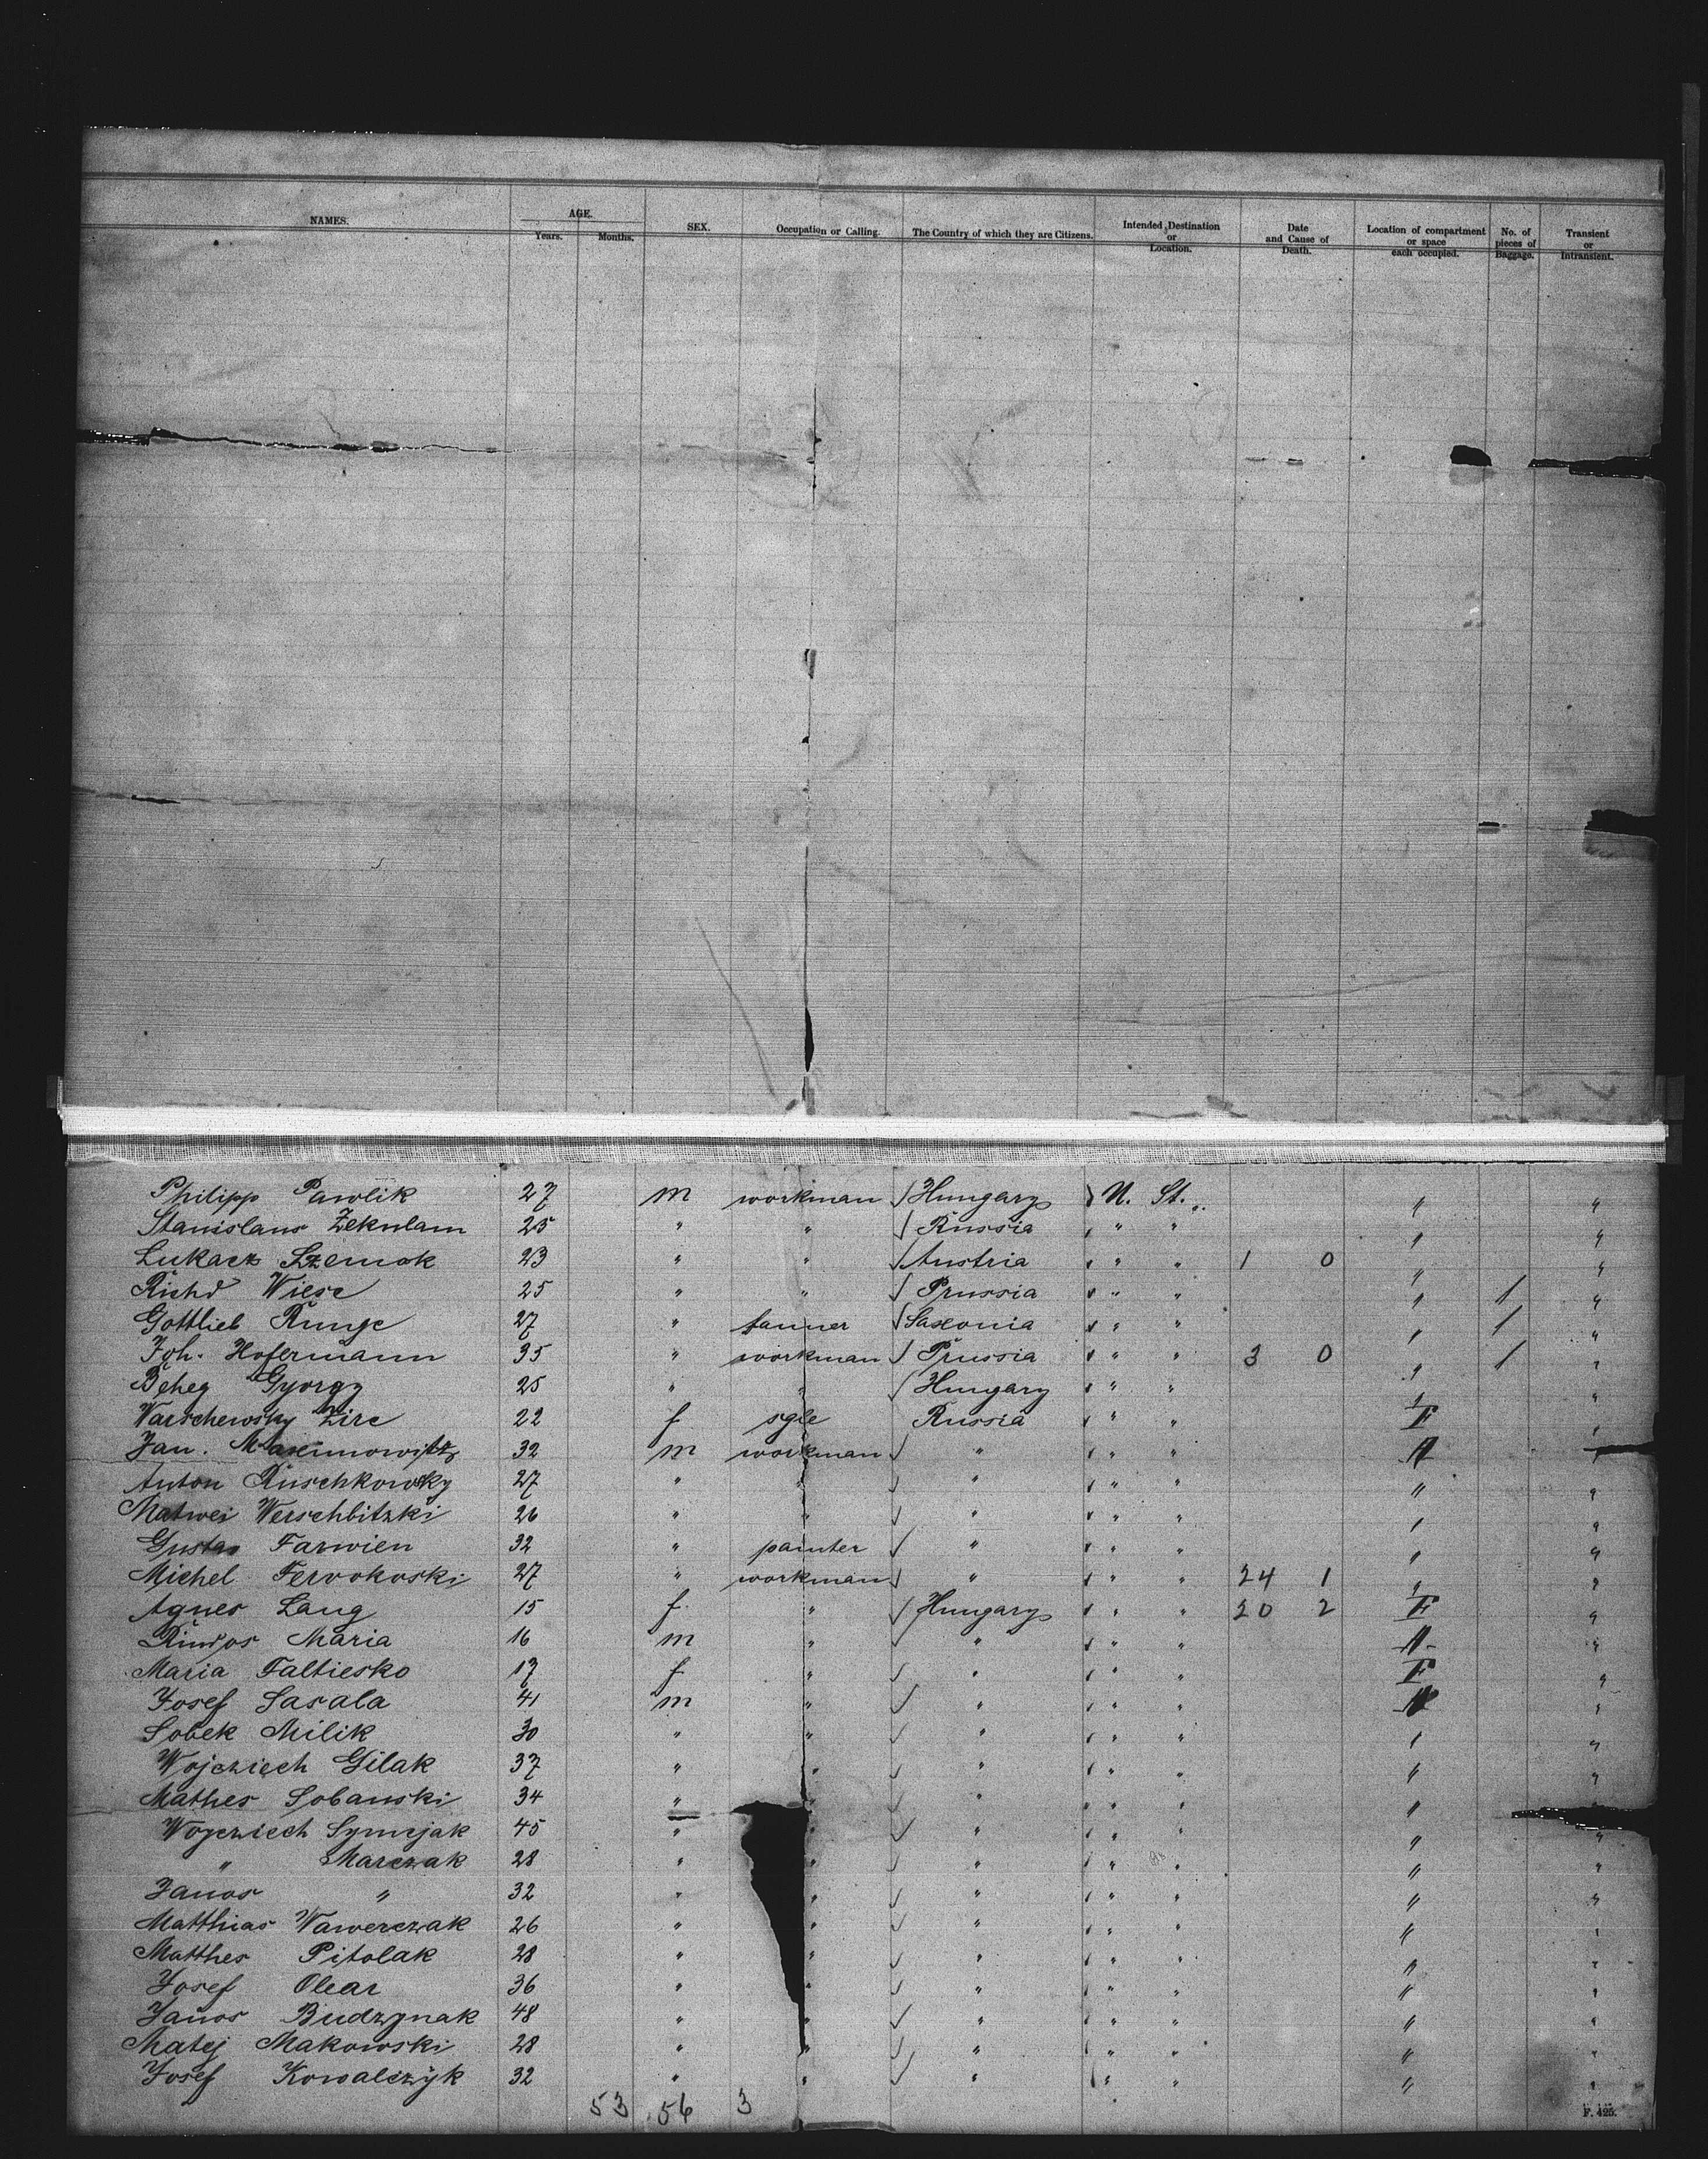 NAMES. AGE. SEX. Occupation or Calling. The Country of which they are Citizens. Intended Destination or Location. Date and Cause of Death. Location of compartment or space each occupied. No. of pieces of Baggage. Transient or Intransient.
Years. Months.
Philipp Pawlik 27 m workman √ Hungary U. St. " "
Stanislaus 25 " " √ Russia " " " "
Lukacz 23 " " √ Austria " " 1 0 " "
Richd Wiese 25 " " √ Prussia " " " 1 "
Gottlieb Runge 27 " tanner √ Saxonia " " " 1 "
Joh. Hofermann 35 " workman √ Prussia " " 3 0 " 1 "
Beheg Gyorgy 25 " " √ Hungary " " " "
Warschewsky Zire 22 f sgle Russia " " F "
Jan. Maximowitz 32 m workman √ " " " "
Anton Ruschkowsky 27 " " √ " " " " "
Matwei Werschbitzki 26 " " √ " " " " "
Gustav Farwien 32 " painter √ " " " " "
Michel 27 " workman √ " " " 24 1 " "
Agnes Lang 15 f " √ Hungary " " 20 2 F "
Maria 16 m " √ " " " "
Maria Faltiesko 17 f " √ " " " F "
Josef Sasala 41 m " √ " " " "
Sobek Milik 30 " " √ " " " " "
Wojcziech Gilak 37 " " √ " " " " "
Mathes Sobanski 34 " " √ " " " " "
Woycziech Symejak 45 " " √ " " " " "
" Marczak 28 " " √ " " " " "
Janos " 32 " " √ " " " " "
Matthias Wawerczak 26 " " √ " " " " "
Matthes Pitolak 28 " " √ " " " " "
Josef Olear 36 " " √ " " " " "
Janos Budzynak 48 " " √ " " " " "
Matej Makowski 28 " " √ " " " " "
Josef Kowalczyk 32 " " √ " " " " "
53 56 3
F. 425.